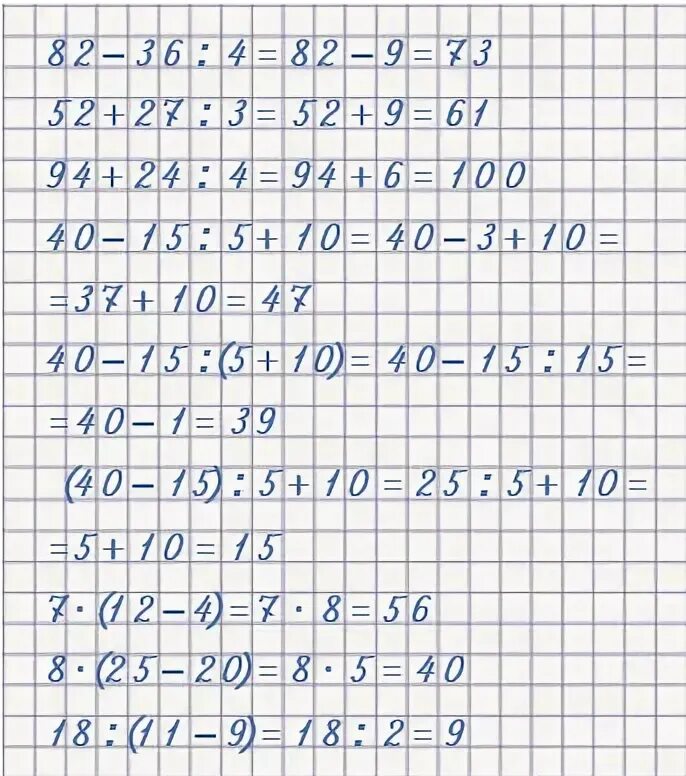 82-36:4=82-9=73
52+27:3=52+9=61
94+24:4=94+6=100
40-15:5+10=40-3+10=
=37+10=47
40-15:(5+10)=40-15:15=
=40-1=39
(40-15):5+10=25:5+10=
=5+10=15
7·(12-4)=7·8=56
8·(25-20)=8·5=40
18:(11-9)=18:2=9